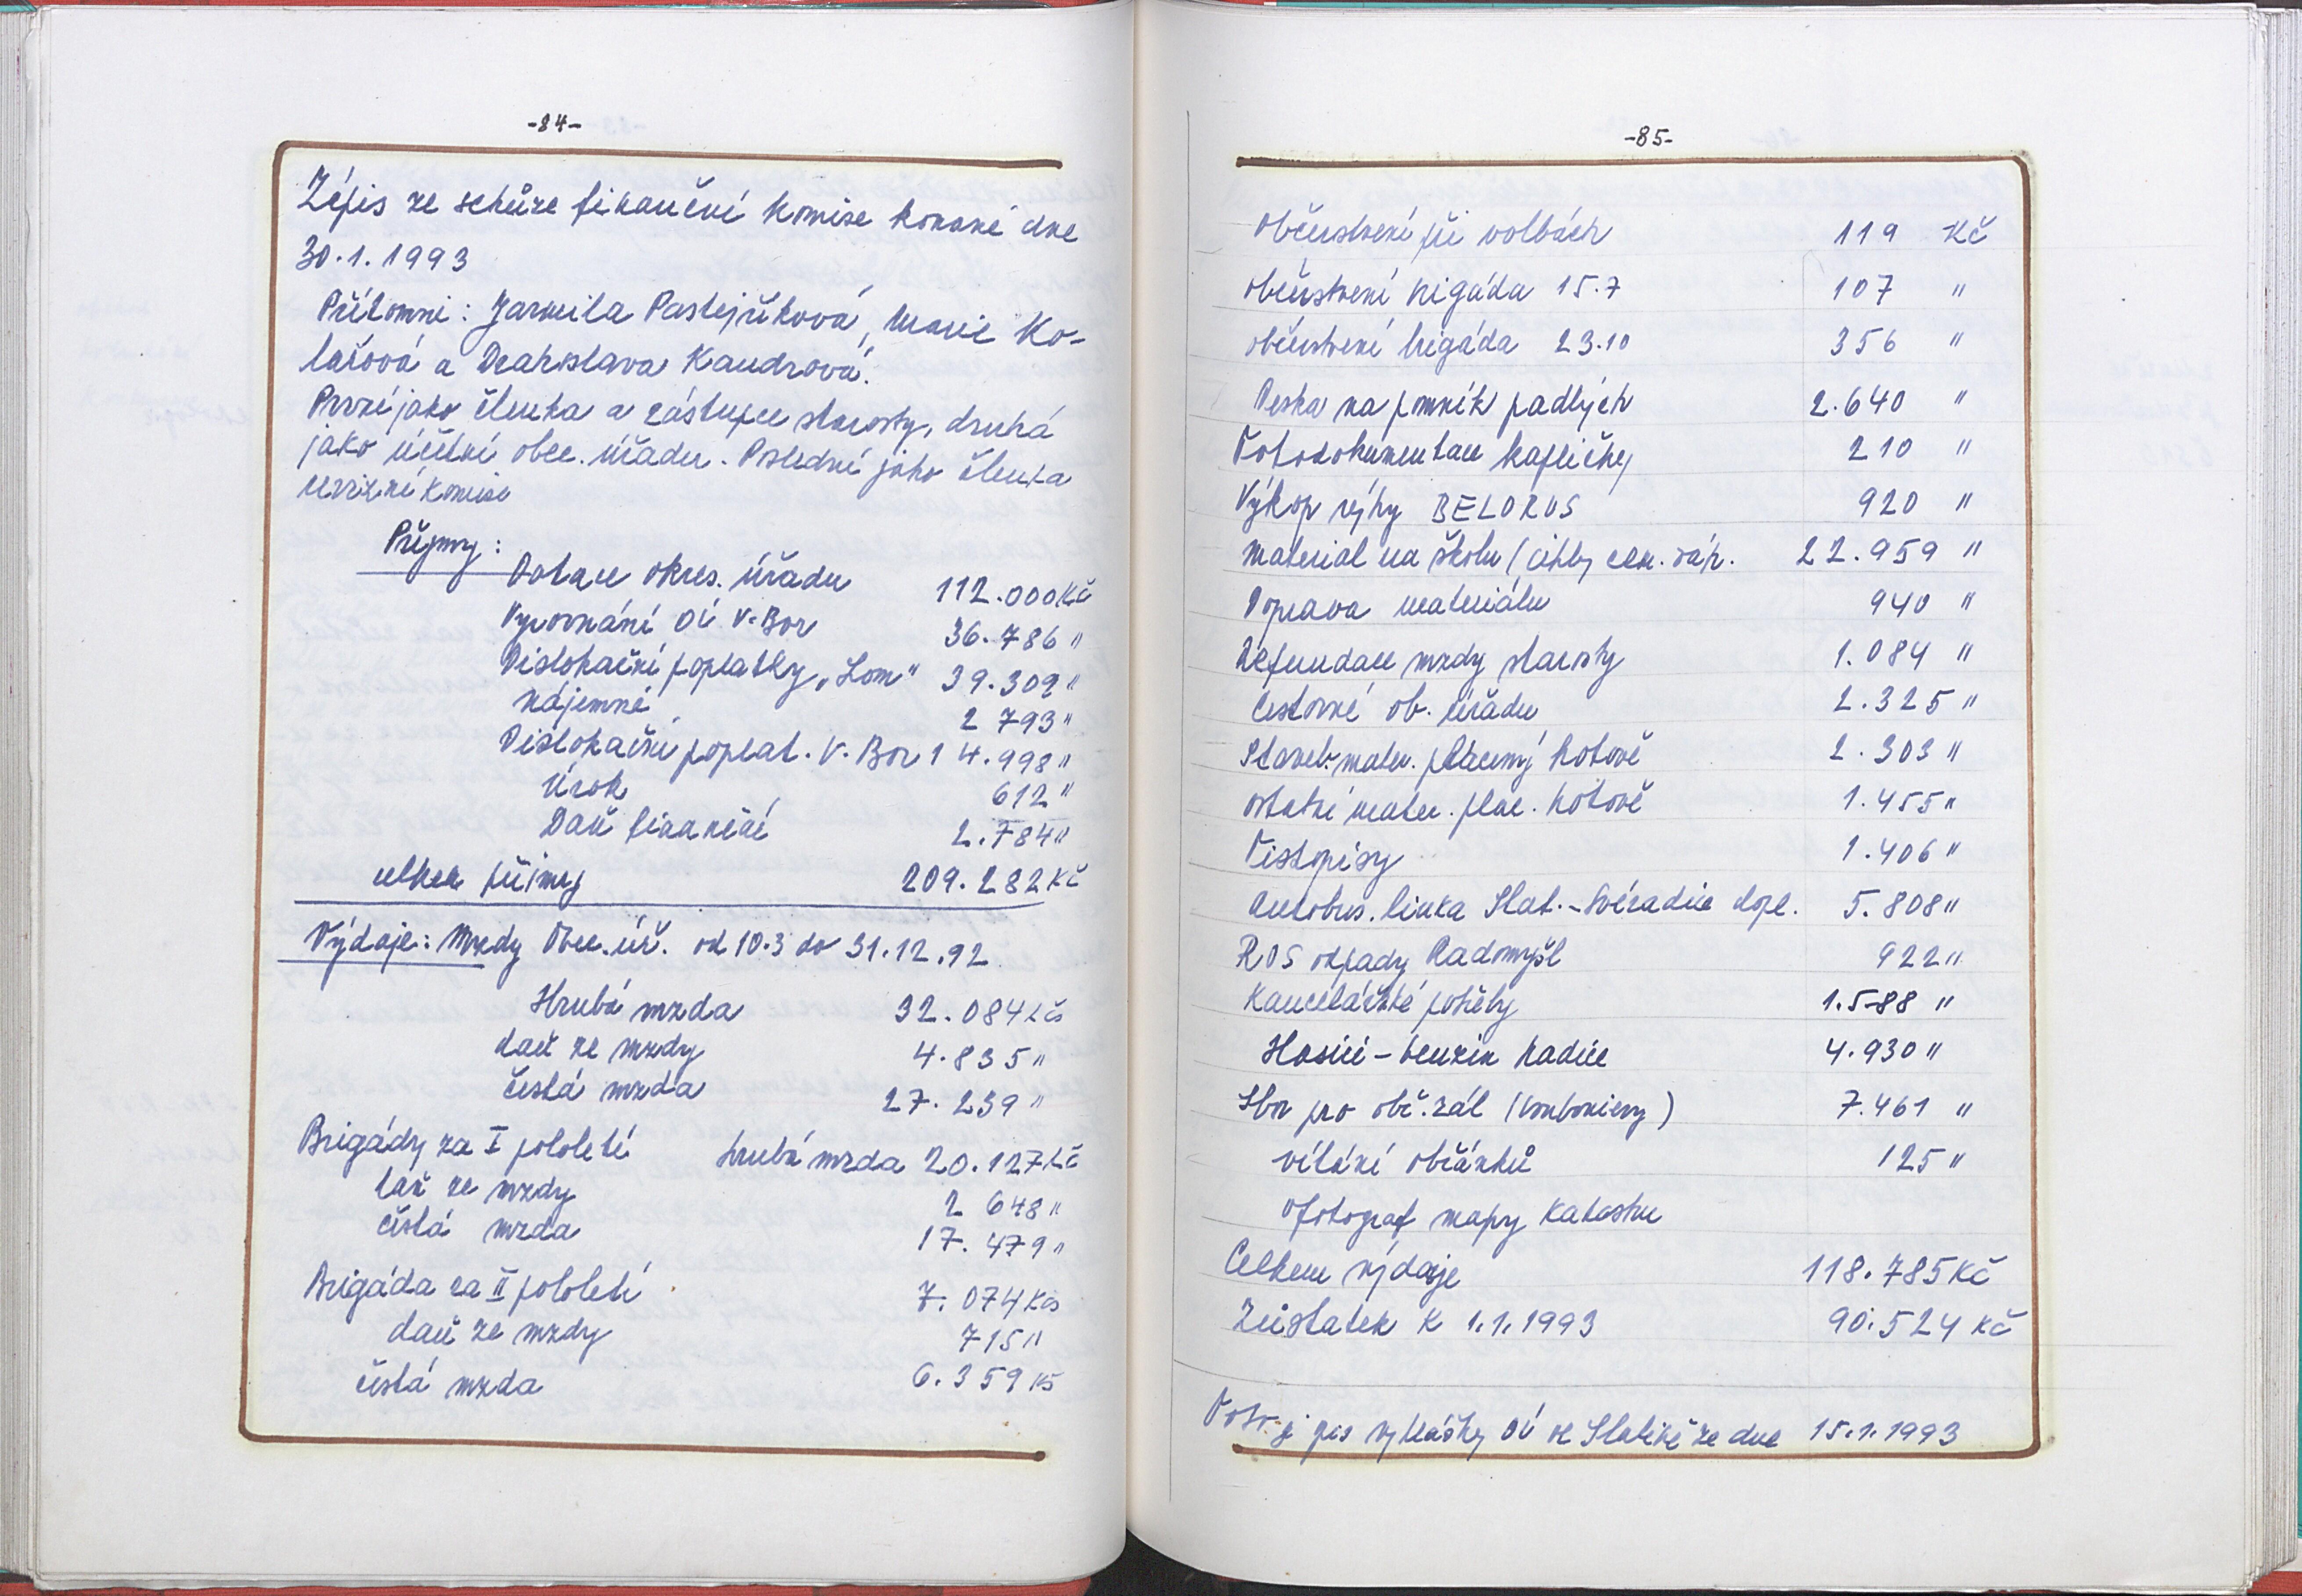 -84-
Zápis ze schůze finanční komise konané dne
30.1.1993
Přítomni: Jarmila Pastejříková, Marie Ko-
lářová a Drahoslava Kandrová.
První jako členka a zástupce starosty, druhá
jako účetní obec. úřadu. Poslední jako členka
revizní komise
Příjmy:
Dotace okres. úřadu 112.000 Kč
Vyrovnání OÚ V. Bor 36.786 "
Dislokační poplatky „Lom" 39.309 "
nájemné 2 793 "
Dislokační poplat. V. Bor 14.998 "
Úrok 612 "
Daň finanční 2.784 "
celkem příjmy 209.282 Kč
Výdaje: Mzdy Obec. úř. od 10.3 do 31.12.92
Hrubá mzda 32.084 Kčs
daň ze mzdy 4.835 "
čistá mzda 27.239 "
Brigády za I pololetí hrubá mzda 20.127 Kč
daň ze mzdy 2 648 "
čistá mzda 17.479 "
Brigáda za II pololetí 7.074 Kčs
daň ze mzdy 715 "
čistá mzda 6.359 Kč
-85-
Občerstvení při volbách 119 Kč
občerstvení brigáda 15.7 107 "
občerstvení brigáda 23.10 356 "
Deska na pomník padlých 2.640 "
Fotodokumentace kapličky 210 "
Výkop rýhy BELORUS 920 "
materiál na školu (cihly cem. váp. 22.959 "
Doprava materiálu 940 "
Refundace mzdy starosty 1.084 "
Cestovné ob. úřadu 2.325 "
Staveb. mater. placený hotově 2.303 "
ostatní mater. plac. hotově 1.455 "
Tiskopisy 1.406 "
Autobus. linka Slat. - Svéradice dopl. 5.808 "
ROS odpady Radomyšl 922 "
Kancelářské potřeby 1.588 "
Hasiči - benzin hadice 4.930 "
Sbor pro obč. zál (bonboniery) 7.461 "
vítání občánků 125 "
ofotograf mapy katastru
Celkem výdaje 118.785 Kč
Zůstatek k 1.1.1993 90.524 Kč
vyhlášky OÚ ve Slatině ze dne 15.1.1993